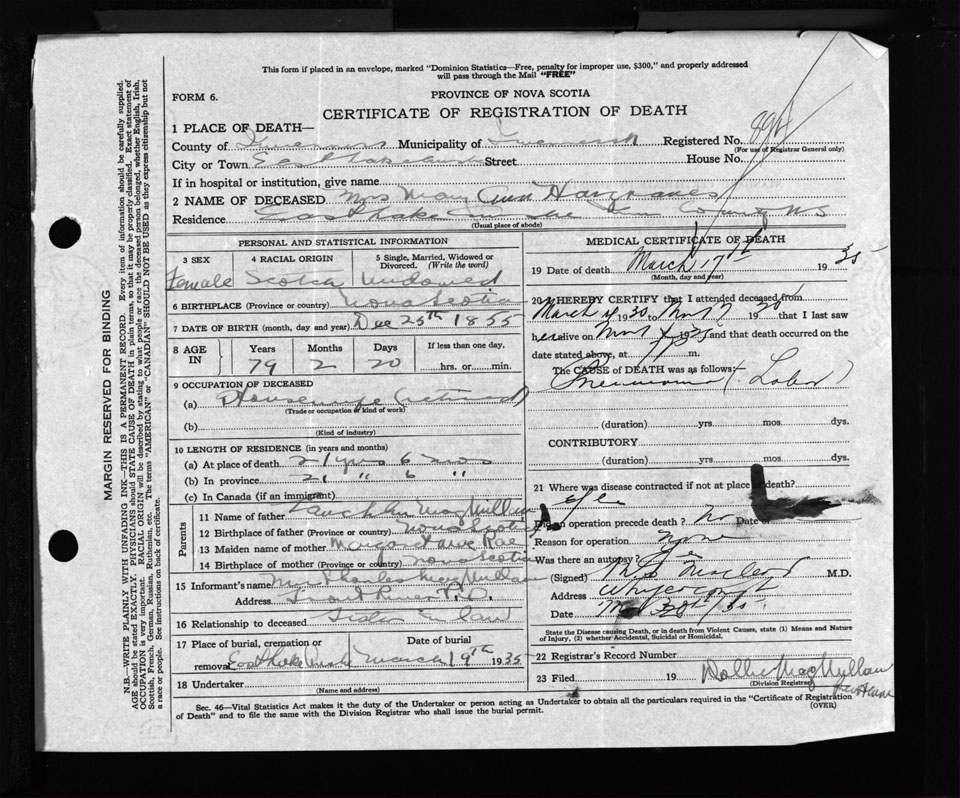 This form if placed in an envelope, marked "Dominion Statistics—Free, penalty for improper use, $300," and properly addressed
will pass through the Mail "FREE"
FORM 6.
PROVINCE OF NOVA SCOTIA
CERTIFICATE OF REGISTRATION OF DEATH
1 PLACE OF DEATH—
County of Inverness Municipality of Inverness Registered No.
(For use of Registrar General only)
City or Town East Lake Ainslie Street House No.
If in hospital or institution, give name
2 NAME OF DECEASED Mrs Mary Ann Hargraves
Residence East Lake Ainslie Inv County N S
(Usual place of abode)
PERSONAL AND STATISTICAL INFORMATION
3 SEX 4 RACIAL ORIGIN 5 Single, Married, Widowed or Divorced. (Write the word)
Female Scotch Widowed
6 BIRTHPLACE (Province or country) Nova Scotia
7 DATE OF BIRTH (month, day, and year) Dec 25th 1855
8 AGE IN Years Months Days If less than one day,
79 2 20 hrs. or min.
9 OCCUPATION OF DECEASED
(a) Housewife (retired)
(Trade or occupation or kind of work)
(b)
(Kind of industry)
10 LENGTH OF RESIDENCE (in years and months)
(a) At place of death 21 yrs 6 mos
(b) In province 21 " 6 "
(c) In Canada (if an immigrant)
Parents
11 Name of father Lauchlin MacMillan
12 Birthplace of father (Province or country) Nova Scotia
13 Maiden name of mother Margaret MacRae
14 Birthplace of mother (Province or country) Nova Scotia
15 Informant's name Mrs Charles MacMillan
Address Trout River P.O.
16 Relationship to deceased Sister in law
17 Place of burial, cremation or removal Date of burial
East Lake Ainslie March 19th 1935
18 Undertaker
(Name and address)
MEDICAL CERTIFICATE OF DEATH
19 Date of death March 17th 1935
(Month, day and year)
20 I HEREBY CERTIFY that I attended deceased from
March 1935 to 1935 that I last saw
her alive on 1935 and that death occurred on
date stated above, at m.
The CAUSE of DEATH was as follows:
Pneumonia (Lobar)
(duration) yrs. mos. dys.
CONTRIBUTORY
(duration) yrs. mos. dys.
21 Where was disease contracted if not at place of death?
Did an operation precede death? No Date of
Reason for operation
Was there an autopsy?
(Signed) MacLeod M.D.
Address Whycocomagh
Date
State the Disease causing Death, or in death from Violent Causes, state (1) Means and Nature
of Injury, (2) whether Accidental, Suicidal or Homicidal.
22 Registrar's Record Number
23 Filed 19 Dollie MacMillan
(Division Registrar)
Sec. 46—Vital Statistics Act makes it the duty of the Undertaker or person acting as Undertaker to obtain all the particulars required in the "Certificate of Registration
of Death" and to file the same with the Division Registrar who shall issue the burial permit.
(OVER)
MARGIN RESERVED FOR BINDING
N.B.—WRITE PLAINLY WITH UNFADING INK—THIS IS A PERMANENT RECORD. Every item of information should be carefully supplied.
AGE should be stated EXACTLY. PHYSICIANS should STATE CAUSE OF DEATH in plain terms, so that it may be properly classified. Exact statement of
OCCUPATION is very important. RACIAL ORIGIN will be described by stating to what people or race the deceased person belonged, whether English, Irish,
Scottish, French, German, Russian, Ruthenian, etc. The terms "AMERICAN" or "CANADIAN" SHOULD NOT BE USED as they express citizenship but not
a race or people. See instructions on back of certificate.